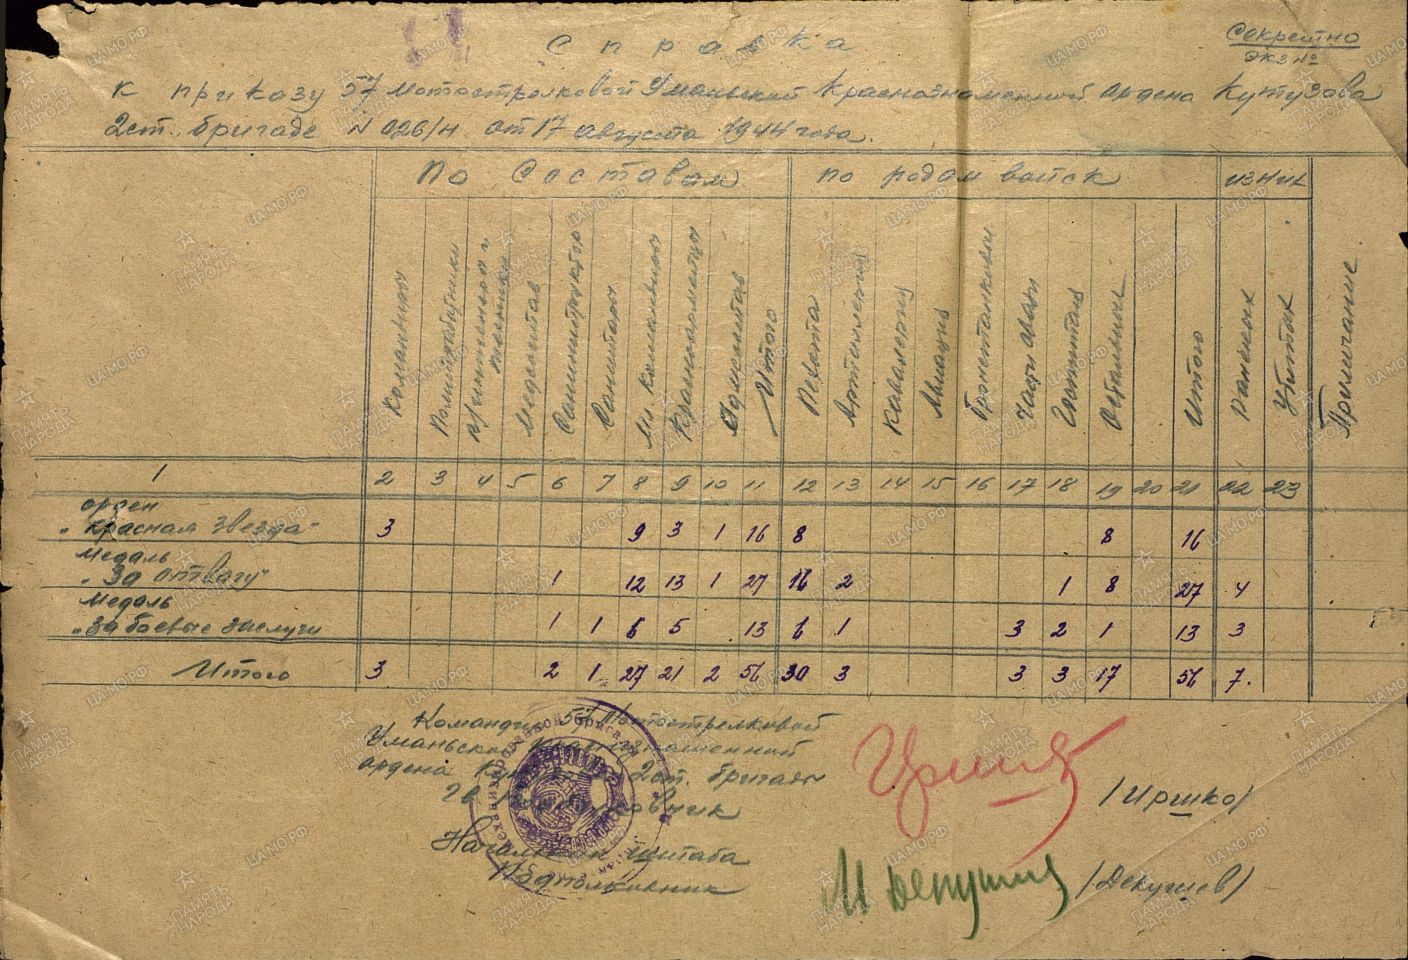 Секретно
Экз №
Справка
к приказу 57 мотострелковой Уманьской Краснознаменной ордена Кутузова
2 ст. бригаде N 026/н от 17 августа 1944 года.
По Составам
по родам войск
из них
Командиры
Политработники
Инженеры и техники
Медсостав
Санинструктор
Санитары
Мл. Командиры
Красноармейцы
Админ.состав
Итого
Пехота
Артиллерия
Кавалерия
Авиация
Бронетанковые
Части связи
Остальные
Итого
Раненых
Убитых
Примечание
1 2 3 4 5 6 7 8 9 10 11 12 13 14 15 16 17 18 19 20 21 22 23
орден
„Красная Звезда" 3 9 3 1 16 8 8 16
Медаль
„За отвагу" 1 12 13 1 27 16 2 1 8 27 4
Медаль
„За боевые заслуги 1 1 6 5 13 6 1 3 2 1 13 3
Итого 3 2 1 27 21 2 56 30 3 3 3 17 56 7.
Командир 57 Мотострелковой
Уманьской Краснознаменной
ордена Кутузова 2 ст. бригады
Гв
/Иршко/
Начальник штаба
Подполковник
/Депушев/
ПАМЯТЬ НАРОДА
ЦАМО.РФ